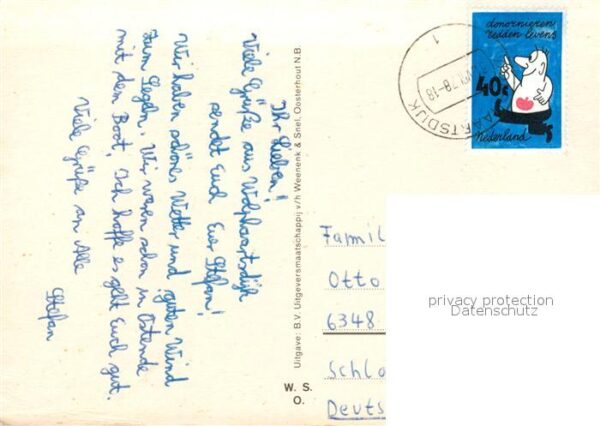 Ihr Lieben!
Viele Grüße aus Wolphaartsdijk
sendet Euch Euer Stefan!
Wir haben schönes Wetter und guten Wind
zum Segeln. Wir waren schon in Ostende
mit dem Boot. Ich hoffe es geht Euch gut.
Viele Grüße an Alle
Stefan
Uitgave: B.V. Uitgeversmaatschappij v/h Weenenk & Snel, Oosterhout N.B.
W. S.
O.
donornieren
redden levens
40c
nederland
1
78-18
AARTSDIJK
Famil
Otto
6348
Schlo
Deuts
privacy protection
Datenschutz